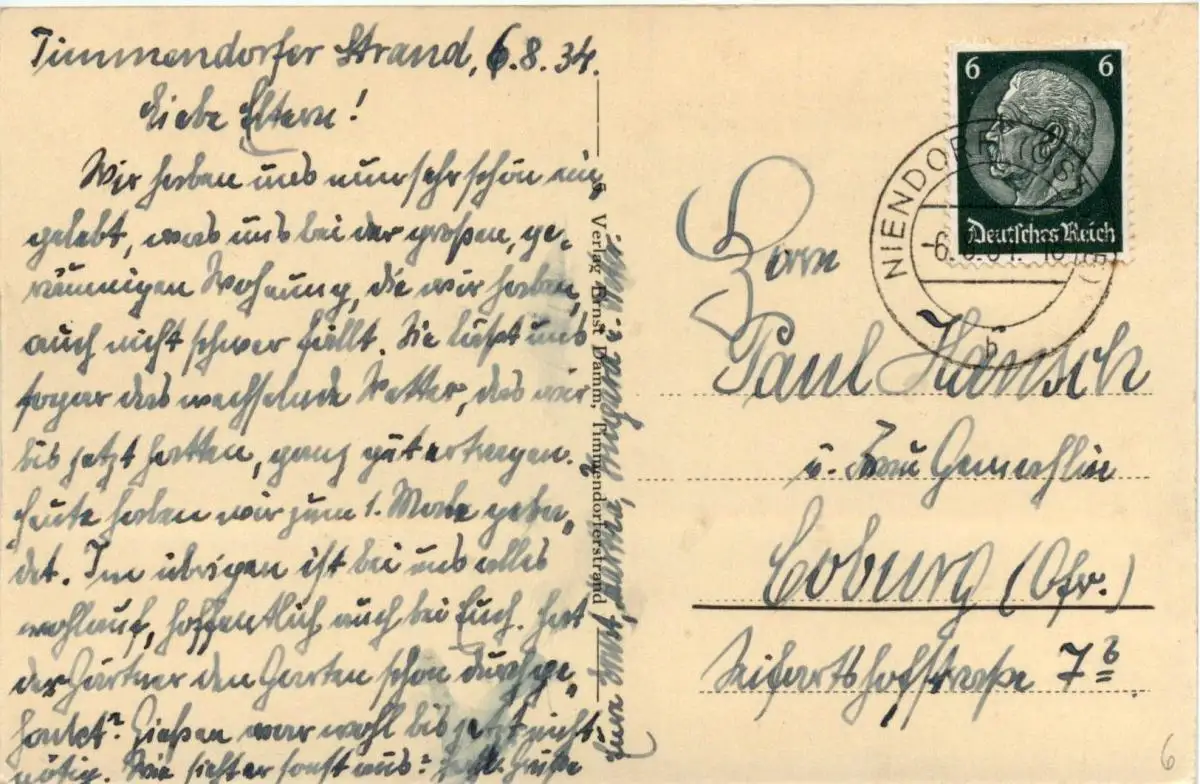 Timmendorfer Strand, 6.8.34.
Liebe Eltern!
Wir haben uns nun sehr schön ein
gelebt, was uns bei der großen, ge-
räumigen Wohnung, die wir haben,
auch nicht schwer fällt. Sie läßt uns
sogar das wechselnde Wetter, das wir
bis jetzt hatten, ganz gut ertragen.
Heute haben wir zum 1. Male geba-
det. Im übrigen ist bei uns alles
wohlauf, hoffentlich auch bei Euch. Hat
der Gärtner den Garten schon durchge-
hackt? Gießen war wohl bis jetzt nicht
nötig. Wie sieht er sonst aus? Herzl. Grüße
Verlag Ernst Damm, Timmendorferstrand
6 6
Deutsches Reich
NIENDORF (OST
b
Herrn
Paul Hansch
u. Frau Gemahlin
Coburg (Ofr.)
Seifartshofstrasse 7b
6